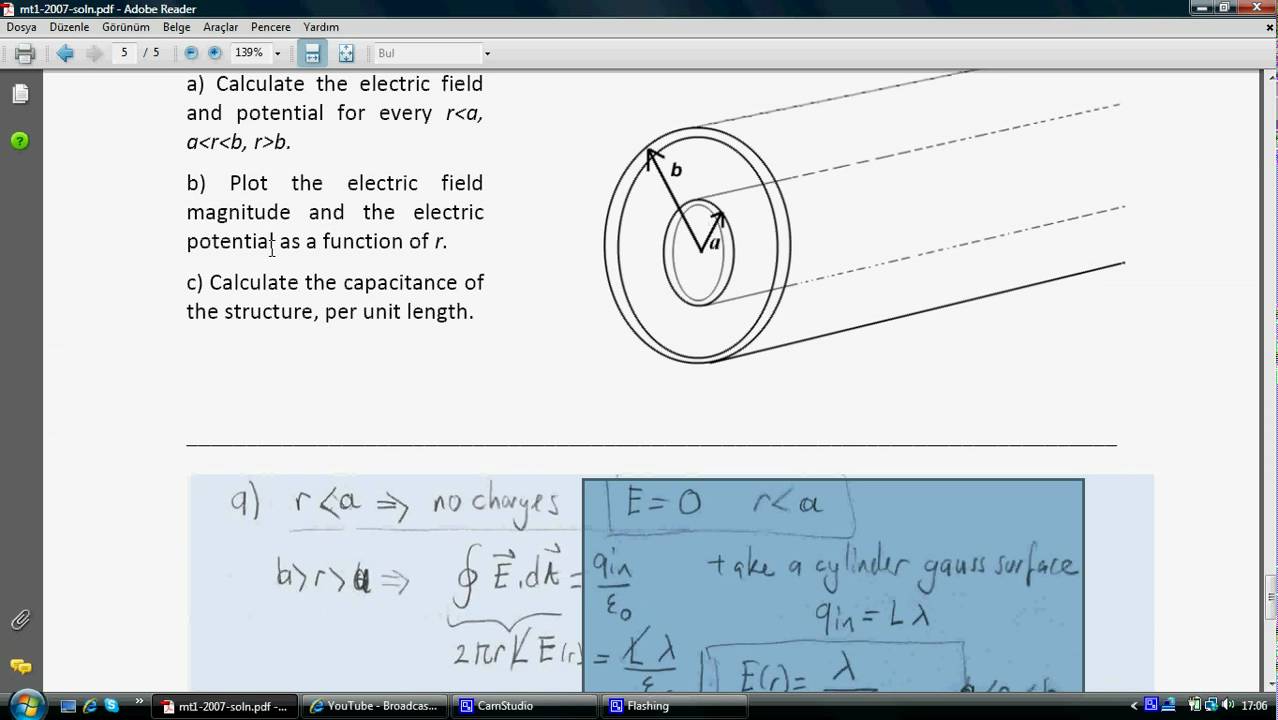 mt1-2007-soln.pdf - Adobe Reader
Dosya Düzenle Görünüm Belge Araçlar Pencere Yardım
5 / 5 139% Bul
a) Calculate the electric field
and potential for every r<a,
a<r<b, r>b.
b) Plot the electric field
magnitude and the electric
potential as a function of r.
c) Calculate the capacitance of
the structure, per unit length.
b
a
a) r<a ⇒ no charges E = 0 r<a
b>r>a ⇒ ∮ E⃗ . dA⃗ = qin/ε0 take a cylinder gauss surface
qin = Lλ
2πrL E(r) = Lλ/ε E(r) = λ
mt1-2007-soln.pdf -... YouTube - Broadcas... CamStudio Flashing 17:06